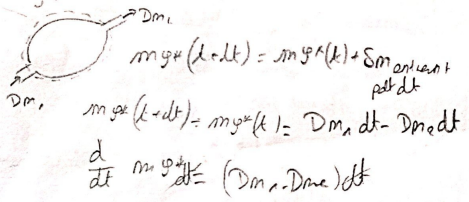 Dm₂
Dm₁
m𝒮*(t+dt) = m𝒮*(t) + δm entrant
pdt dt
m𝒮*(t+dt) - m𝒮*(t) = Dm₁ dt - Dm₂ dt
d/dt m𝒮* dt = (Dm₁ - Dm₂) dt